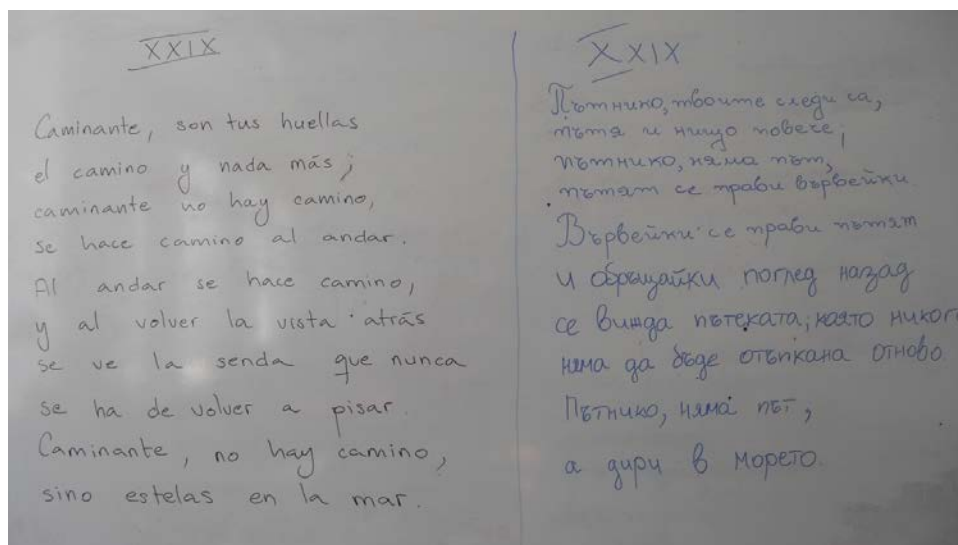 XXIX
Caminante, son tus huellas
el camino y nada más;
caminante no hay camino,
se hace camino al andar.
Al andar se hace camino,
y al volver la vista atrás
se ve la senda que nunca
se ha de volver a pisar.
Caminante, no hay camino,
sino estelas en la mar.
XXIX
Пътнико, твоите следи са,
пътя и нищо повече;
пътнико, няма път,
пътят се прави вървейки.
Вървейки се прави пътят
и обръщайки поглед назад
се вижда пътеката, която никог
няма да бъде отъпкана отново.
Пътнико, няма път,
а дири в морето.